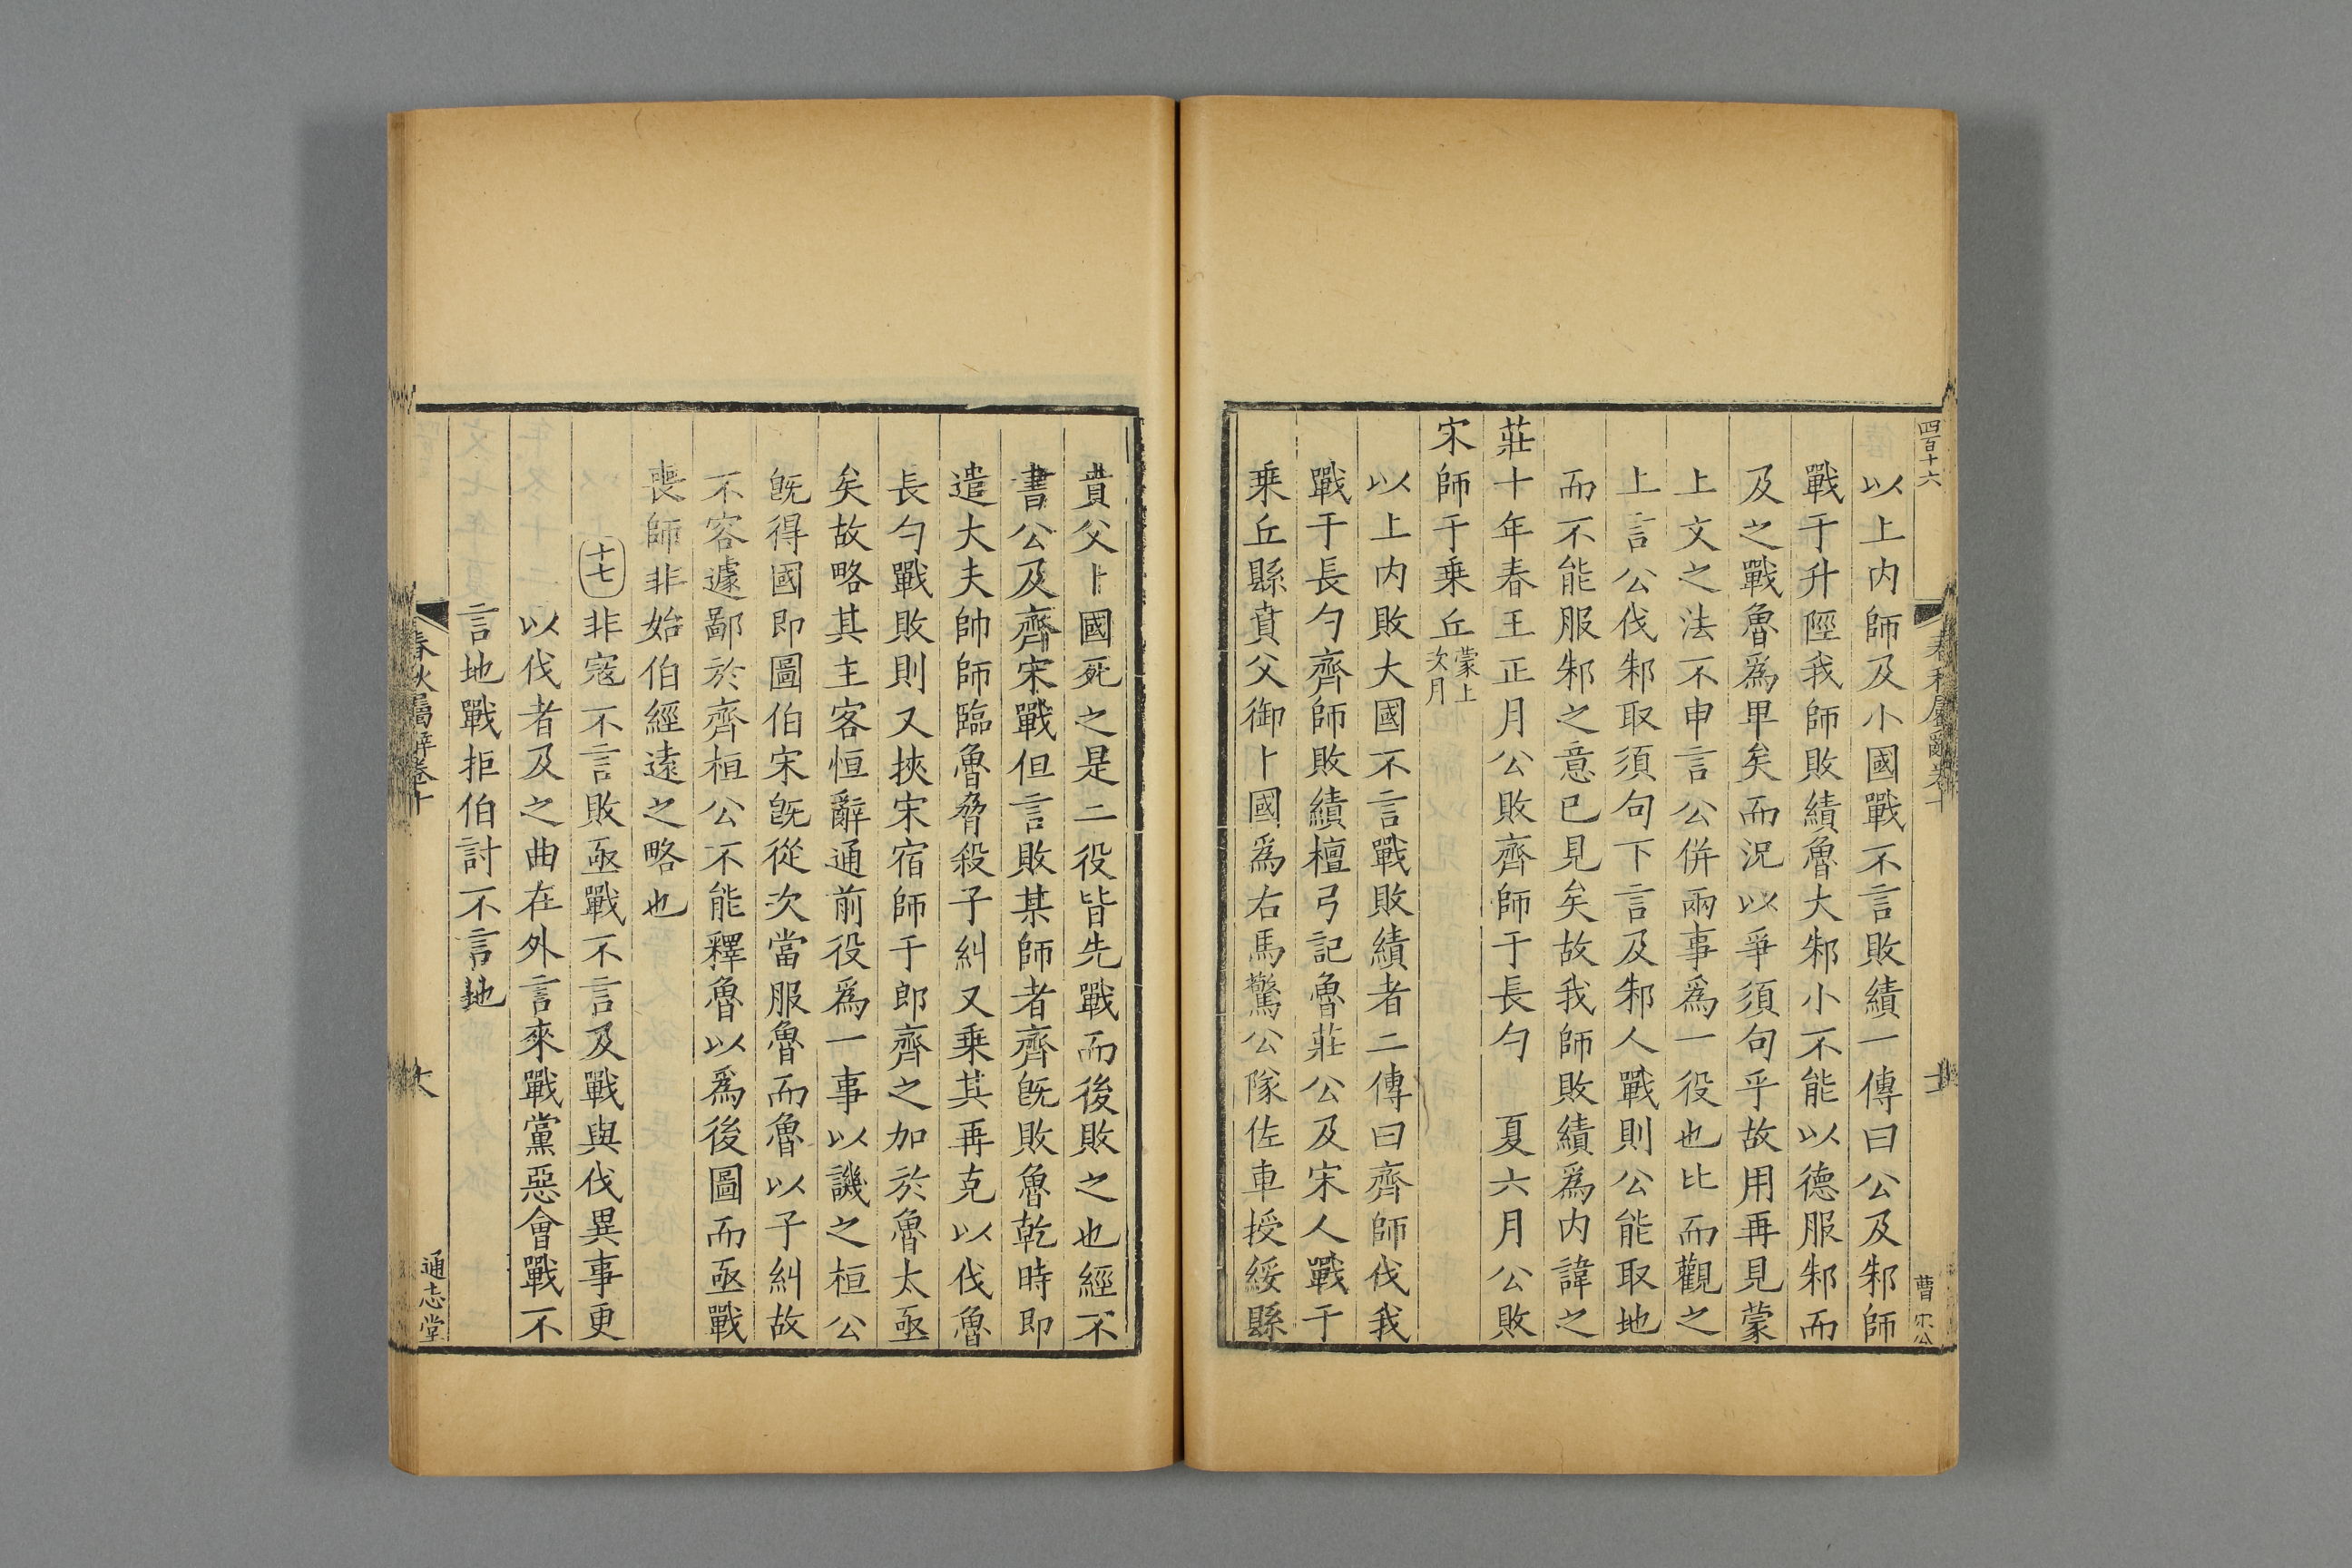 四百十六
春秋屬辭卷十
曹宋公
以上内師及小國戰不言敗績一傳曰公及邾師
戰于升陘我師敗績魯大邾小不能以德服邾而
及之戰魯爲卑矣而況以爭須句乎故用再見蒙
上文之法不申言公併兩事爲一役也比而觀之
上言公伐邾取須句下言及邾人戰則公能取地
而不能服邾之意已見矣故我師敗績爲内諱之
莊十年春王正月公敗齊師于長勺　夏六月公敗
宋師于乗丘蒙上次月
以上内敗大國不言戰敗績者二傳曰齊師伐我
戰于長勺齊師敗績檀弓記魯莊公及宋人戰于
乗丘縣賁父御卜國爲右馬驚公隊佐車授綏縣
賁父卜國死之是二役皆先戰而後敗之也經不
書公及齊宋戰但言敗某師者齊旣敗魯乾時即
遣大夫帥師臨魯脅殺子糾又乗其再克以伐魯
長勺戰敗則又挾宋宿師于郎齊之加於魯太亟
矣故略其主客恒辭通前役爲一事以譏之桓公
旣得國即圖伯宋旣從次當服魯而魯以子糾故
不容遽鄙於齊桓公不能釋魯以爲後圖而亟戰
喪師非始伯經遠之略也
十七非寇不言敗亟戰不言及戰與伐異事更
以伐者及之曲在外言來戰黨惡會戰不
言地戰拒伯討不言地
春秋屬辭卷十
通志堂